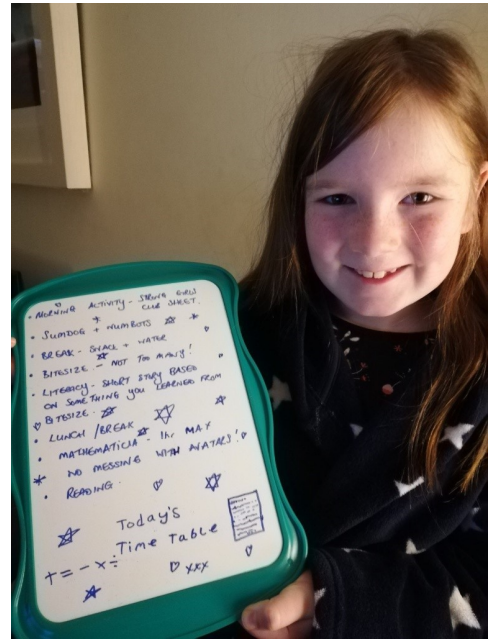 • MORNING ACTIVITY - STRONG GIRLS
CLUB SHEET.
• SUMDOG + NUMBOTS
• BREAK - SNACK + WATER
• BITESIZE. - NOT TOO MANY!
• LITERACY - SHORT STORY BASED
ON SOMETHING YOU LEARNED FROM
BITESIZE.
• LUNCH / BREAK
• MATHEMATICIA - 1hr MAX
* NO MESSING WITH AVATARS!
• READING.
Today's
Time Table
+ = - x ÷
xxx